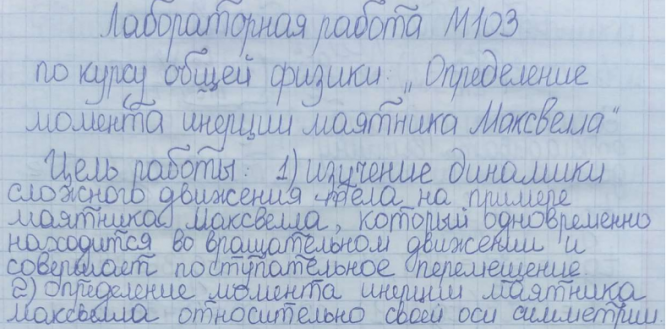 Лабораторная работа М103
по курсу общей физики: „Определение
момента инерции маятника Максвелла"
Цель работы: 1) изучение динамики
сложного движения тела на примере
маятника Максвелла, который одновременно
находится во вращательном движении и
совершает поступательное перемещение
2) определение момента инерции маятника
Максвелла относительно своей оси симметрии.